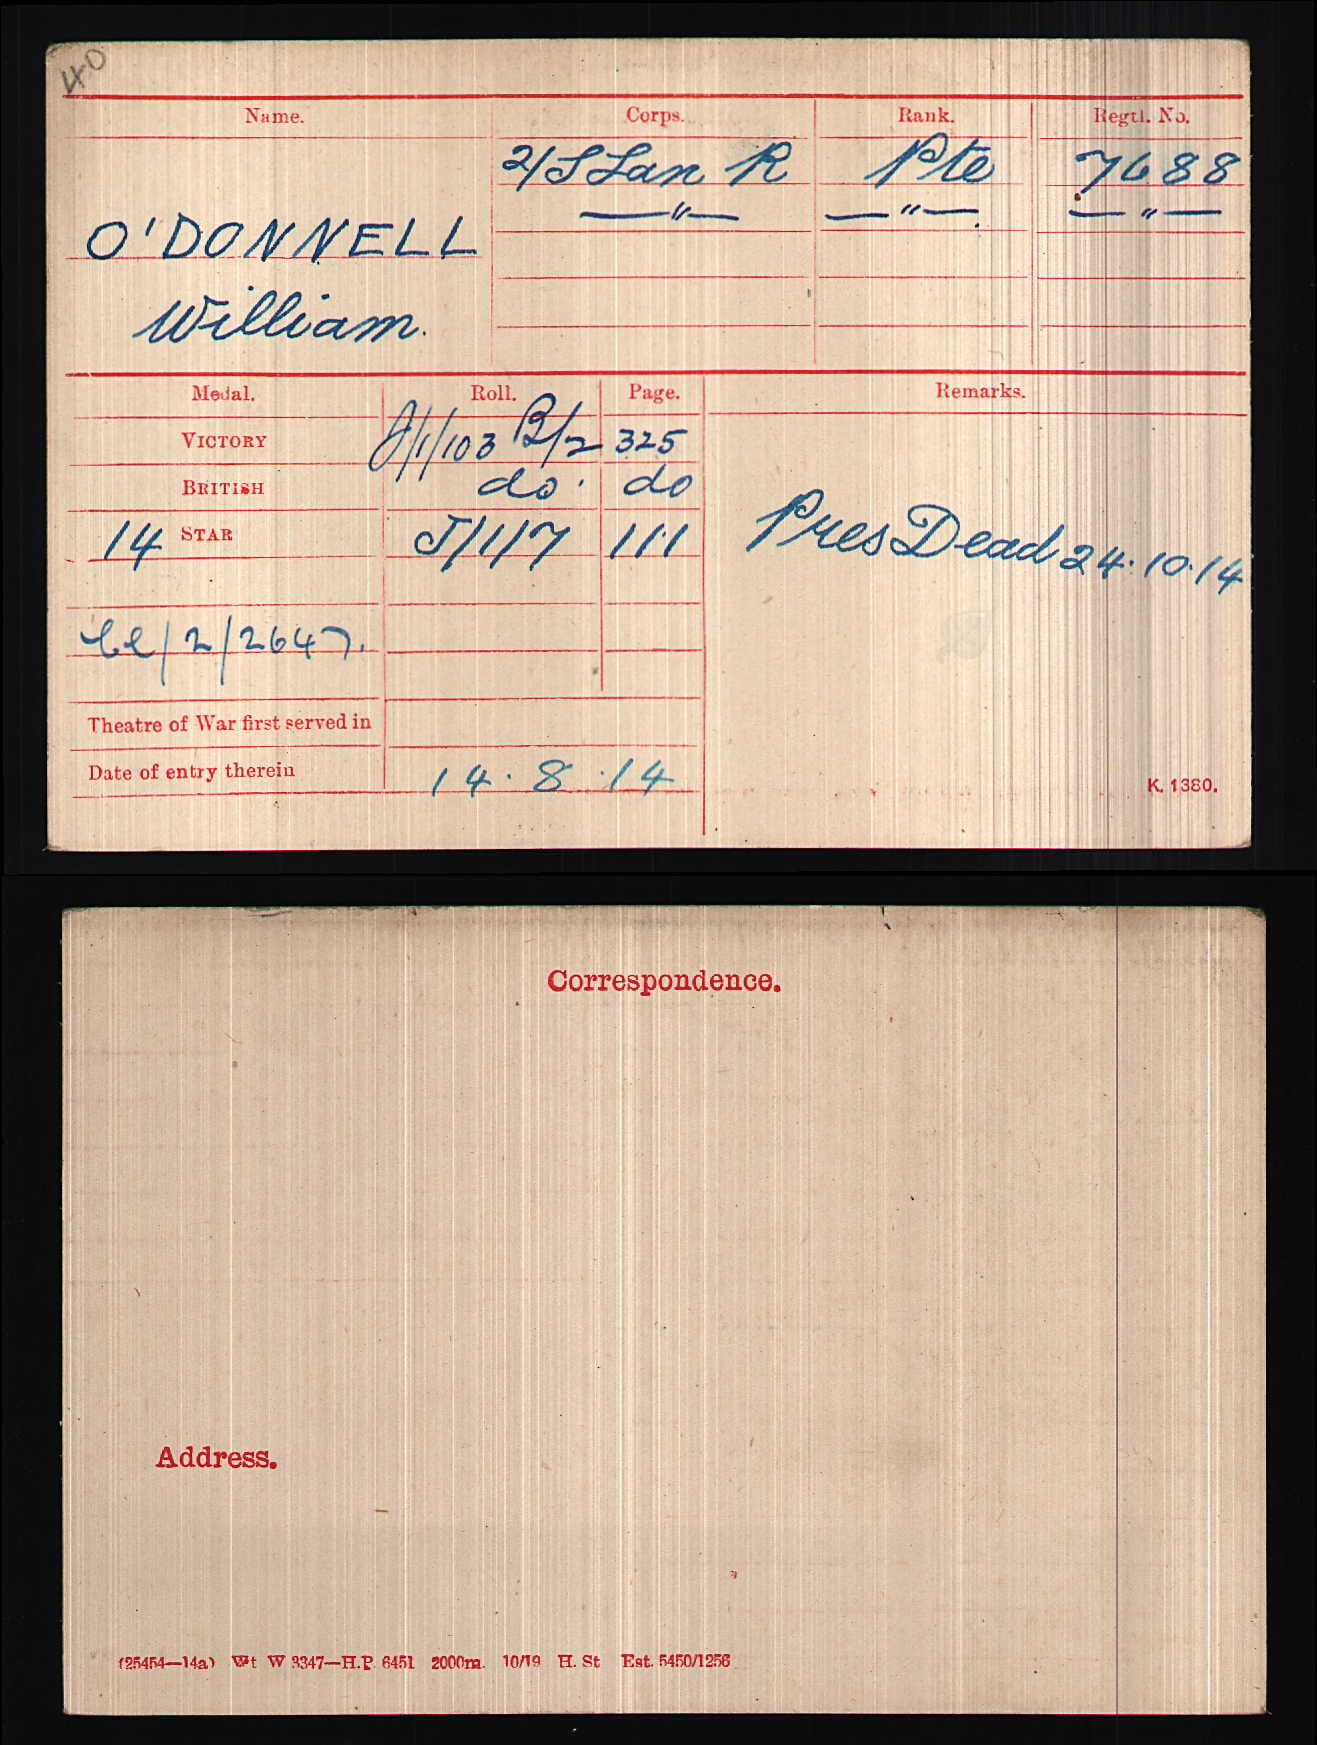 40
Name. Corps. Rank. Regtl. No.
2/S Lan R Pte 7688
—"— —"— —"—
O'DONNELL
William.
Medal. Roll. Page. Remarks.
VICTORY J/1/103 B/2 325
BRITISH do. do
14 STAR J/1/7 111
Pres Dead 24.10.14
Cl/2/2647.
Theatre of War first served in
Date of entry therein 14.8.14
K. 1380.
Correspondence.
Address.
(25454—14a) Wt W 3347—H.P. 6451 2000m. 10/19 H. St Est. 5450/1256